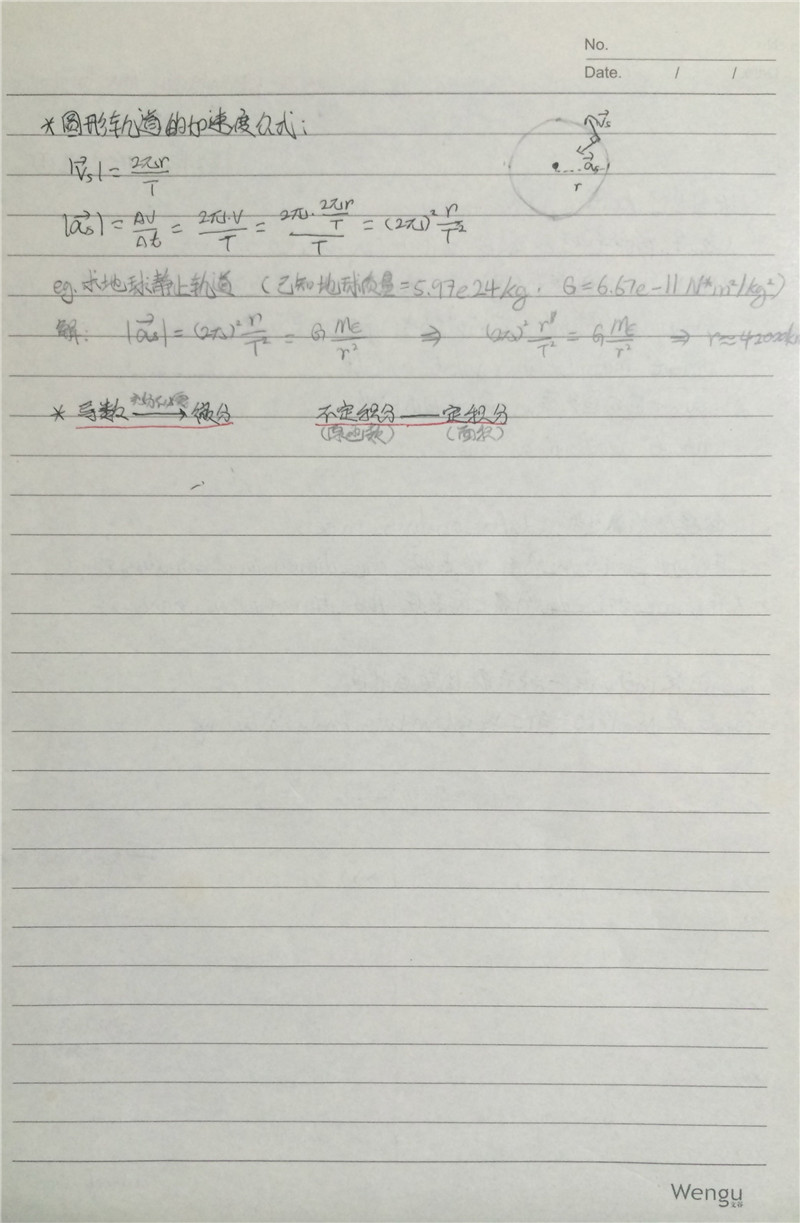 No.
Date. / /
*圆形轨道的加速度公式:
|v⃗s| = 2πr/T
|a⃗s| = Δv/Δt = 2π·v/T = 2π·(2πr/T)/T = (2π)² r/T²
v⃗s
a⃗s
r
eg. 求地球静止轨道 (已知地球质量=5.97e24kg, G=6.67e-11 N*m²/kg²)
解: |a⃗s| = (2π)² r/T² = G ME/r² ⇒ (2π)² r/T² = G ME/r² ⇒ r≈42
* 导数 → 微分 不定积分 — 定积分
(原函数) (面积)
Wengu
文谷